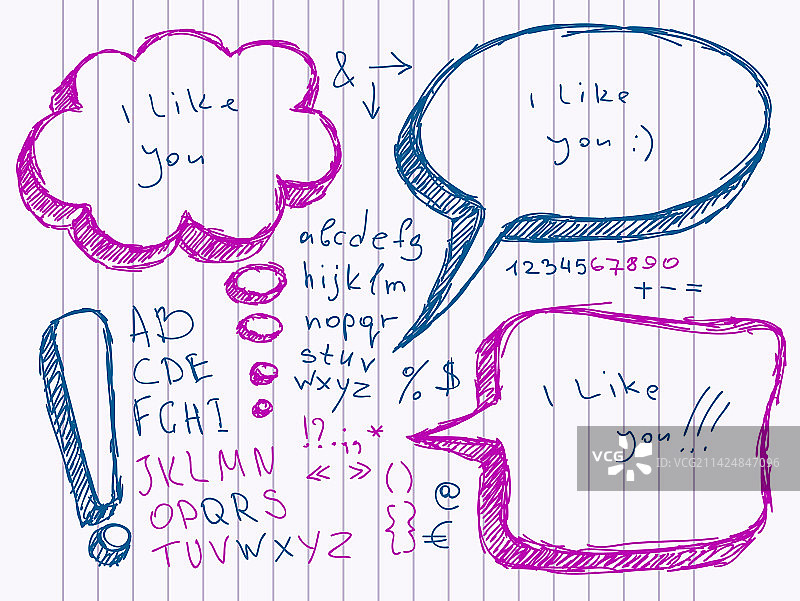 I Like
you
& → ↓
I Like
you :)
abcdefg
hijklm
nopqr
stuv
wxyz
1234567890
+ - =
% $
AB
CDE
FGHI
JKLMN
OPQRS
TUVWXYZ
!?.:,*
« » ()
{} @
€
I Like
you!!!
VCG
VCG.COM
ID:VCG211424847096